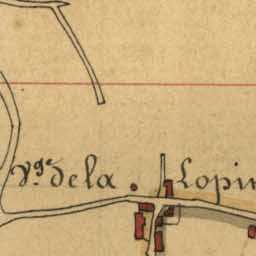 Vge de la Lopin